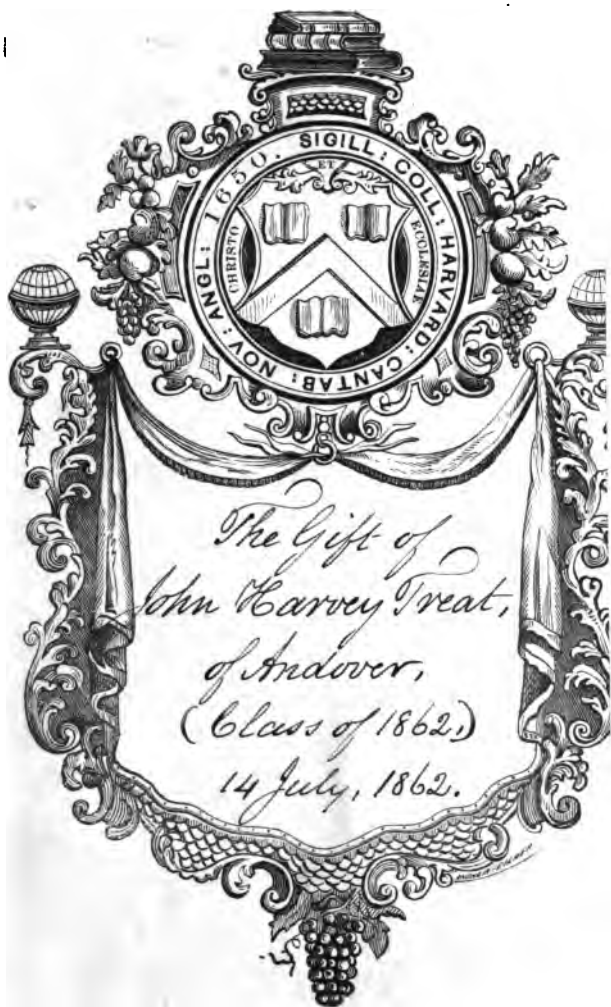 SIGILL: COLL: HARVARD: CANTAB: NOV: ANGL: 1650.
ET
CHRISTO
ECCLESIAE
The Gift of
John Harvey Treat,
of Andover,
(Class of 1862,)
14 July, 1862.